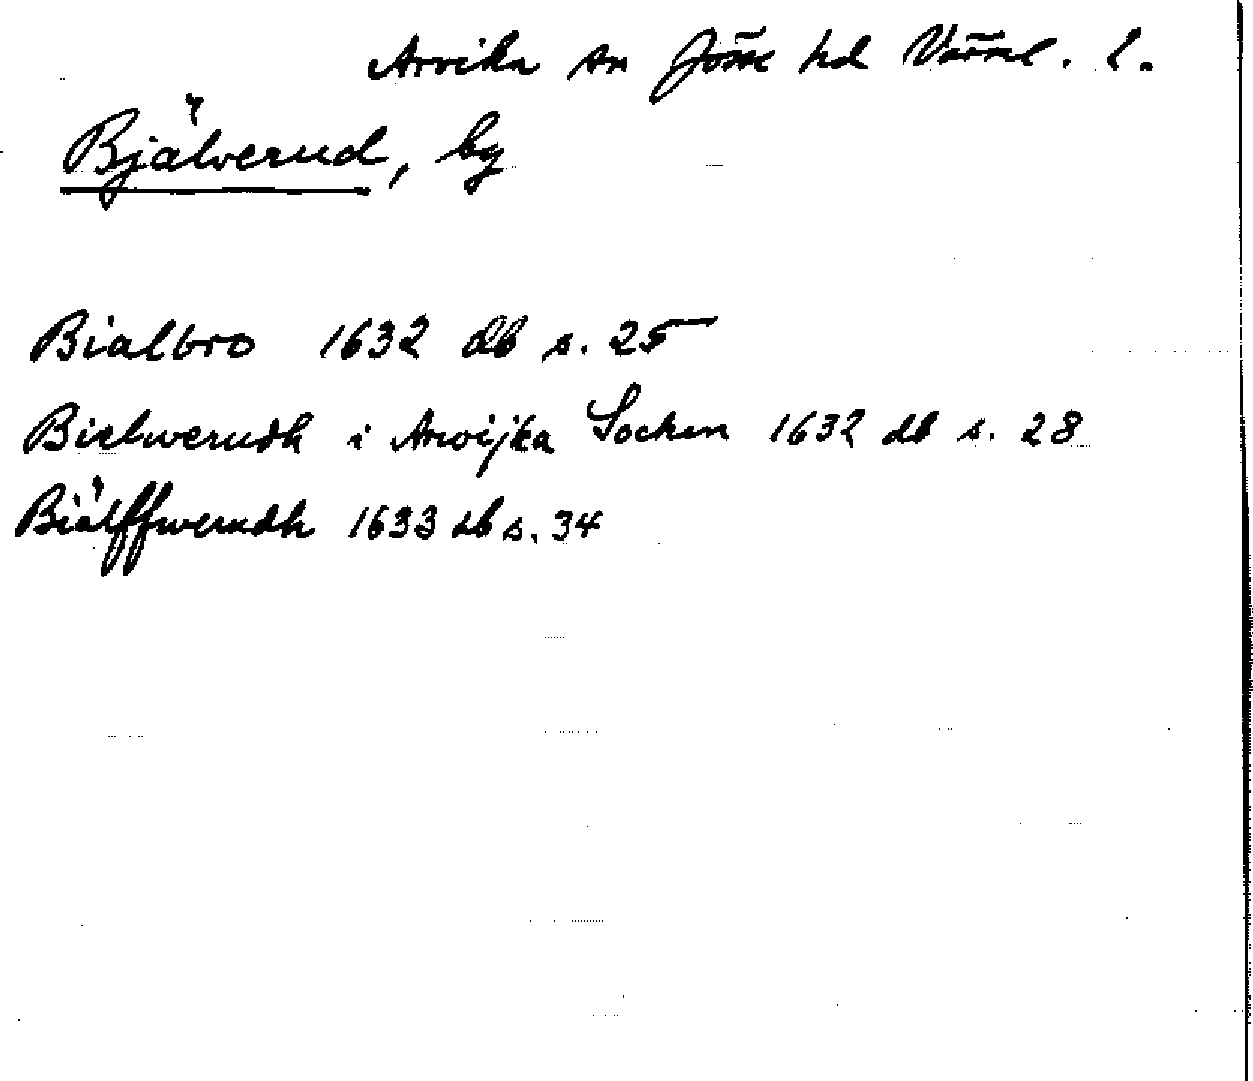 Arvika sn Jösse hd Värml. l.
Bjälverud, by
Bialbro 1632 db s. 25
Bielwerudh i Arwijka Socken 1632 db s. 28
Biälffwerudh 1633 db s. 34